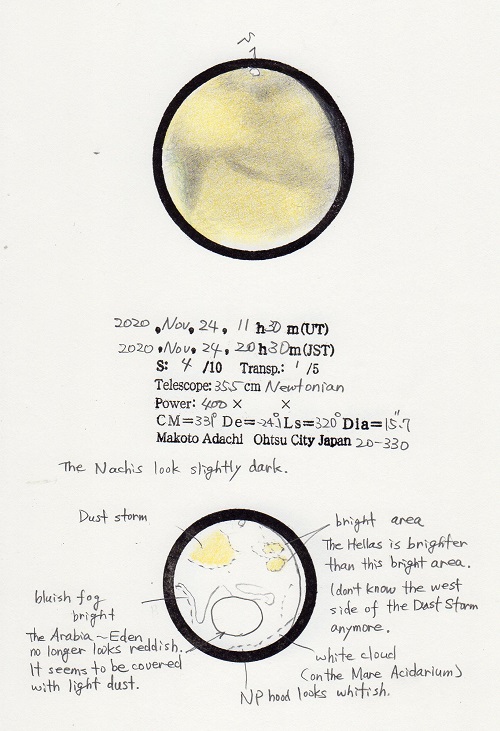 N
2020 , Nov, 24, 11 h 30 m(UT)
2020 , Nov, 24, 20 h 30 m(JST)
S: 4 /10 Transp.: 1 /5
Telescope: 355 cm Newtonian
Power: 400 × ×
CM=331° De=-24.1 Ls=320° Dia=15.7"
Makoto Adachi Ohtsu City Japan 20-330
The Nachis look slightly dark.
Dust storm
bright area
The Hellas is brighter
than this bright area.
I don't know the west
side of the Dust Storm
anymore.
bluish fog
bright
The Arabia ~ Eden
no longer looks reddish.
It seems to be covered
with light dust.
white cloud
(on the Mare Acidarium)
NP hood looks whitish.